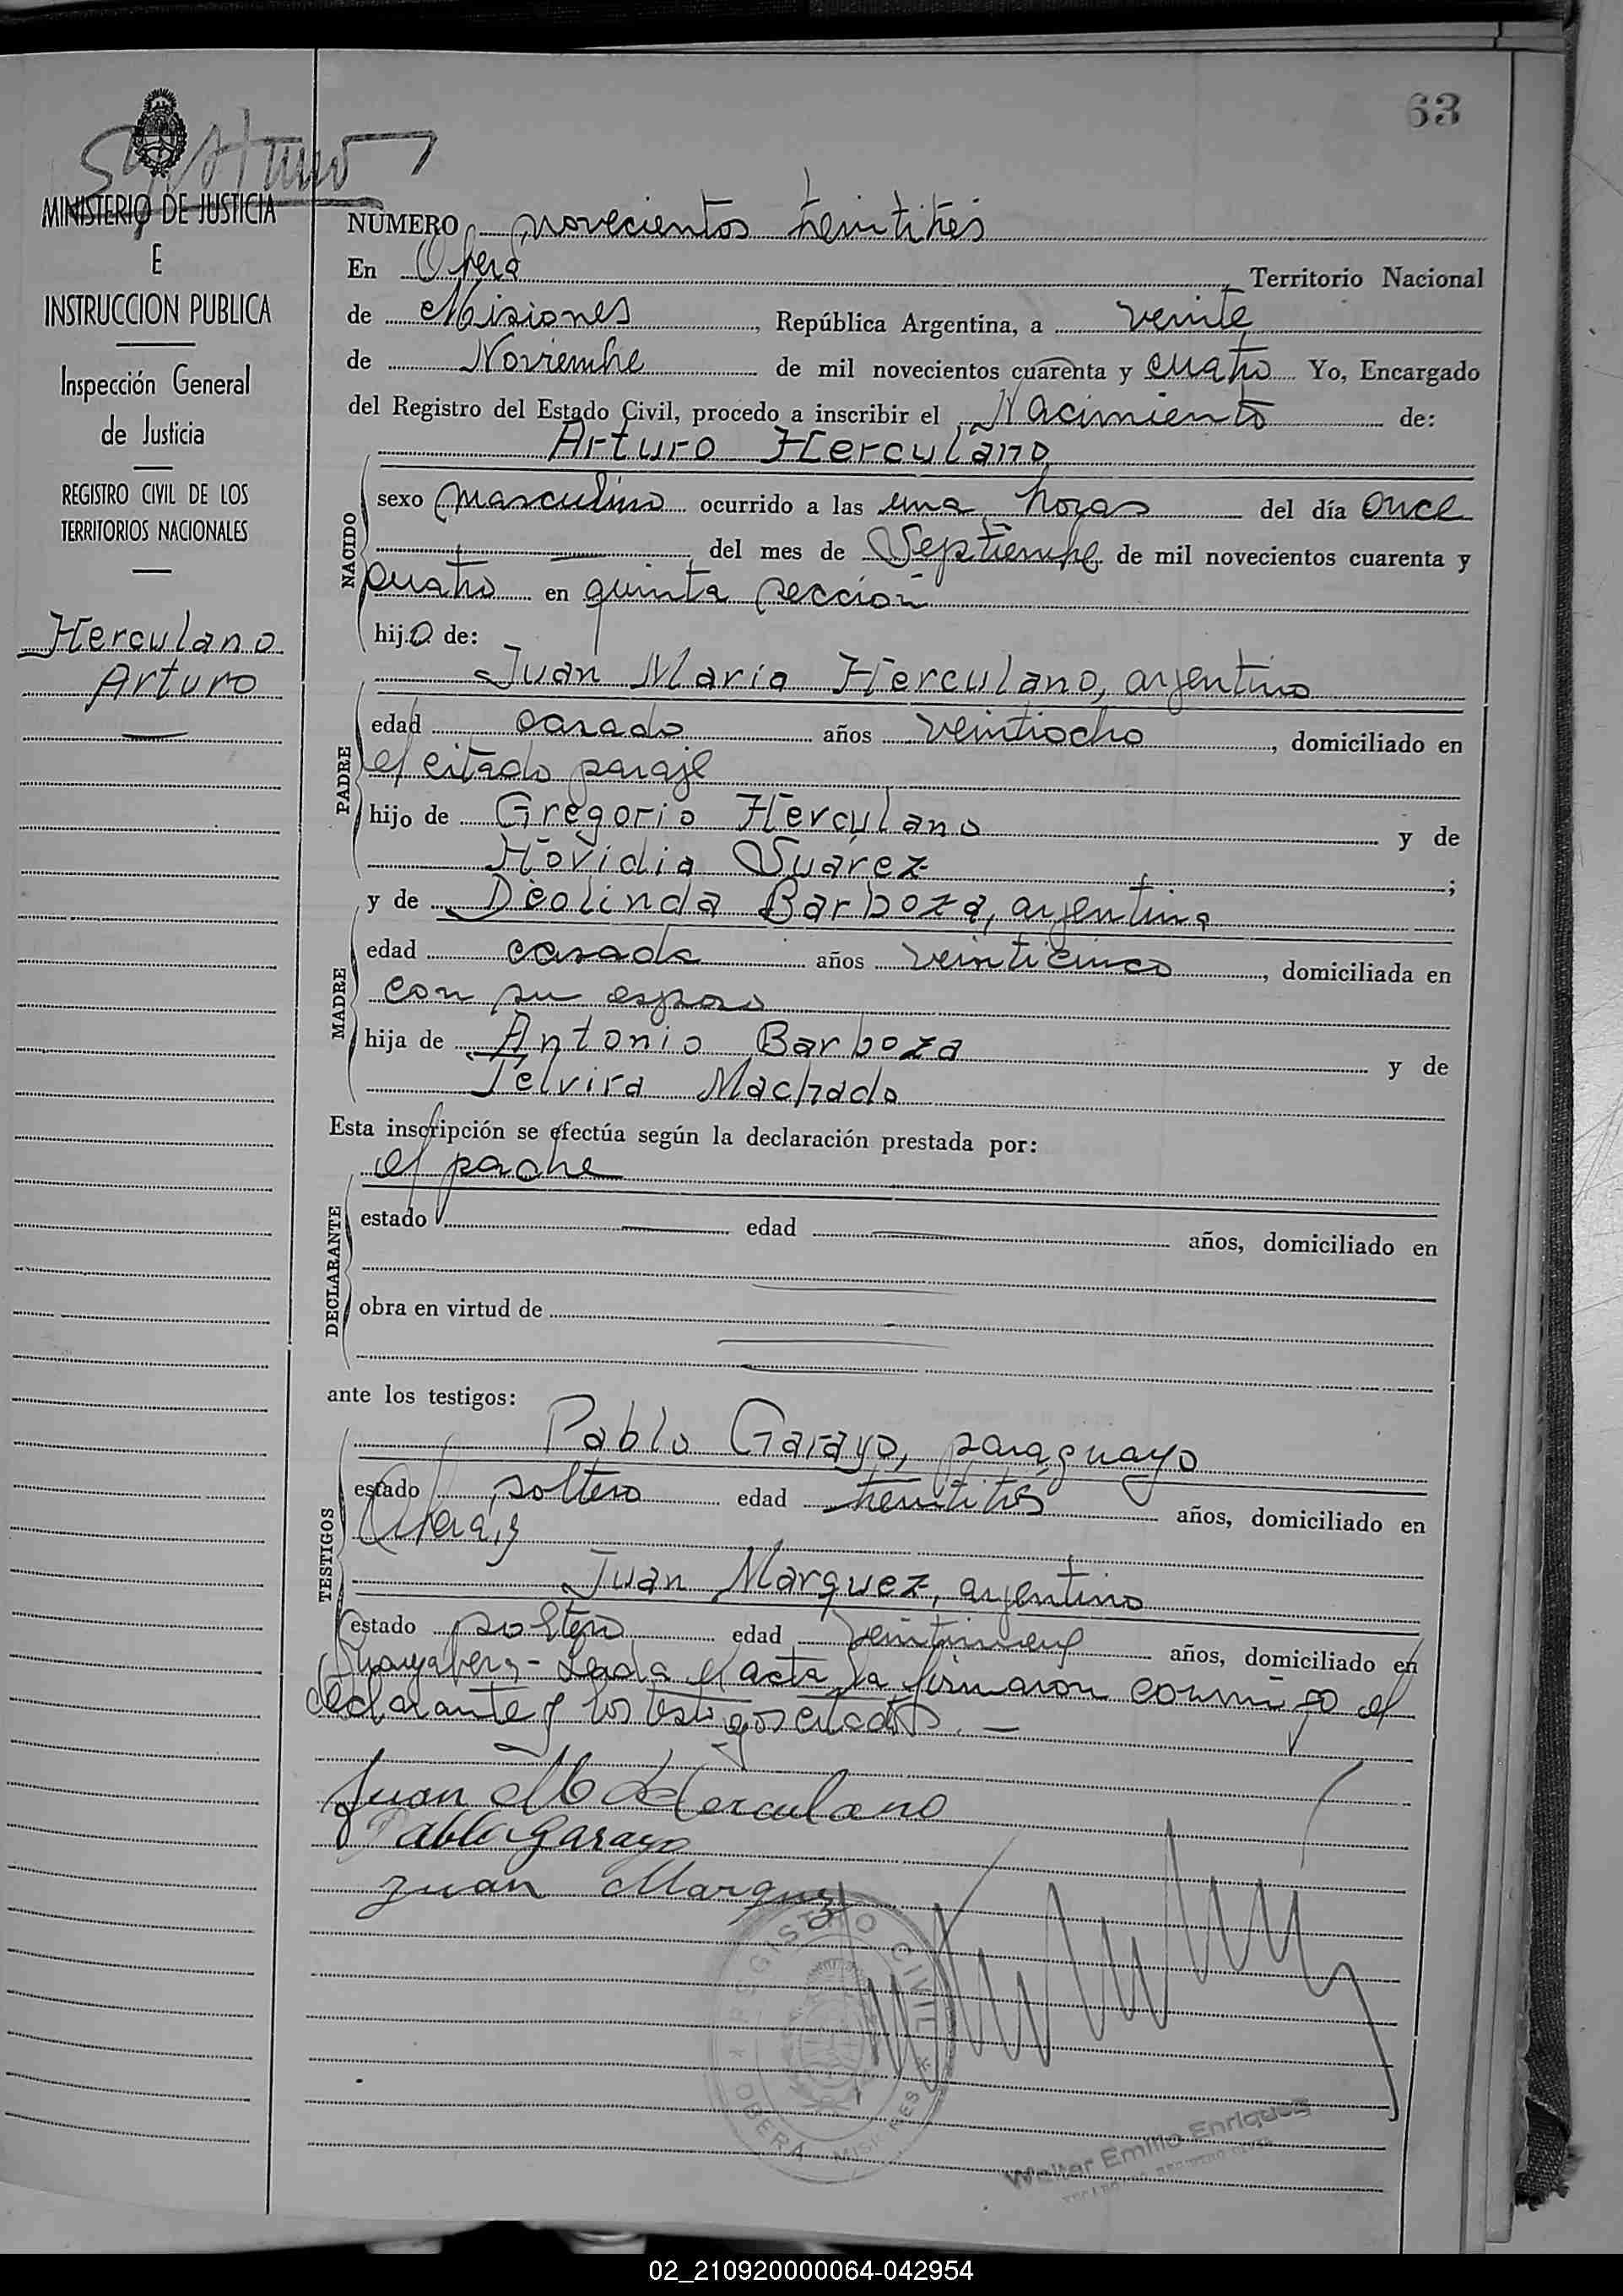 63
MINISTERIO DE JUSTICIA
E
INSTRUCCION PUBLICA
Inspección General
de Justicia
REGISTRO CIVIL DE LOS
TERRITORIOS NACIONALES
Herculano
Arturo
NUMERO novecientos treintitrés
En Oberá Territorio Nacional
de Misiones, República Argentina, a veinte
de Noviembre de mil novecientos cuarenta y cuatro Yo, Encargado
del Registro del Estado Civil, procedo a inscribir el Nacimiento de:
Arturo Herculano
NACIDO
sexo masculino ocurrido a las una horas del día once
del mes de Septiembre de mil novecientos cuarenta y
cuatro en quinta sección
hijo de:
Juan María Herculano, argentino
PADRE
edad casado años veintiocho, domiciliado en
el citado paraje
hijo de Gregorio Herculano y de
Hovidia Suárez;
y de Deolinda Barboza, argentina
MADRE
edad casada años veinticinco, domiciliada en
con su esposo
hija de Antonio Barboza y de
Telvira Machado
Esta inscripción se efectúa según la declaración prestada por:
el padre
DECLARANTE
estado edad años, domiciliado en
obra en virtud de
ante los testigos:
Pablo Garayo, paraguayo
TESTIGOS
estado soltero edad treintitrés años, domiciliado en
Oberá, y
Juan Marquez, argentino
estado soltero edad veintinueve años, domiciliado en
Leida el acta la firmaron conmigo el
declarante y los testigos citados. —
Juan M Herculano
Pablo Garayo
Juan Marquez
REGISTRO CIVIL
OBERÁ MISIONES
Walter Emilio Enriquez
02_210920000064-042954